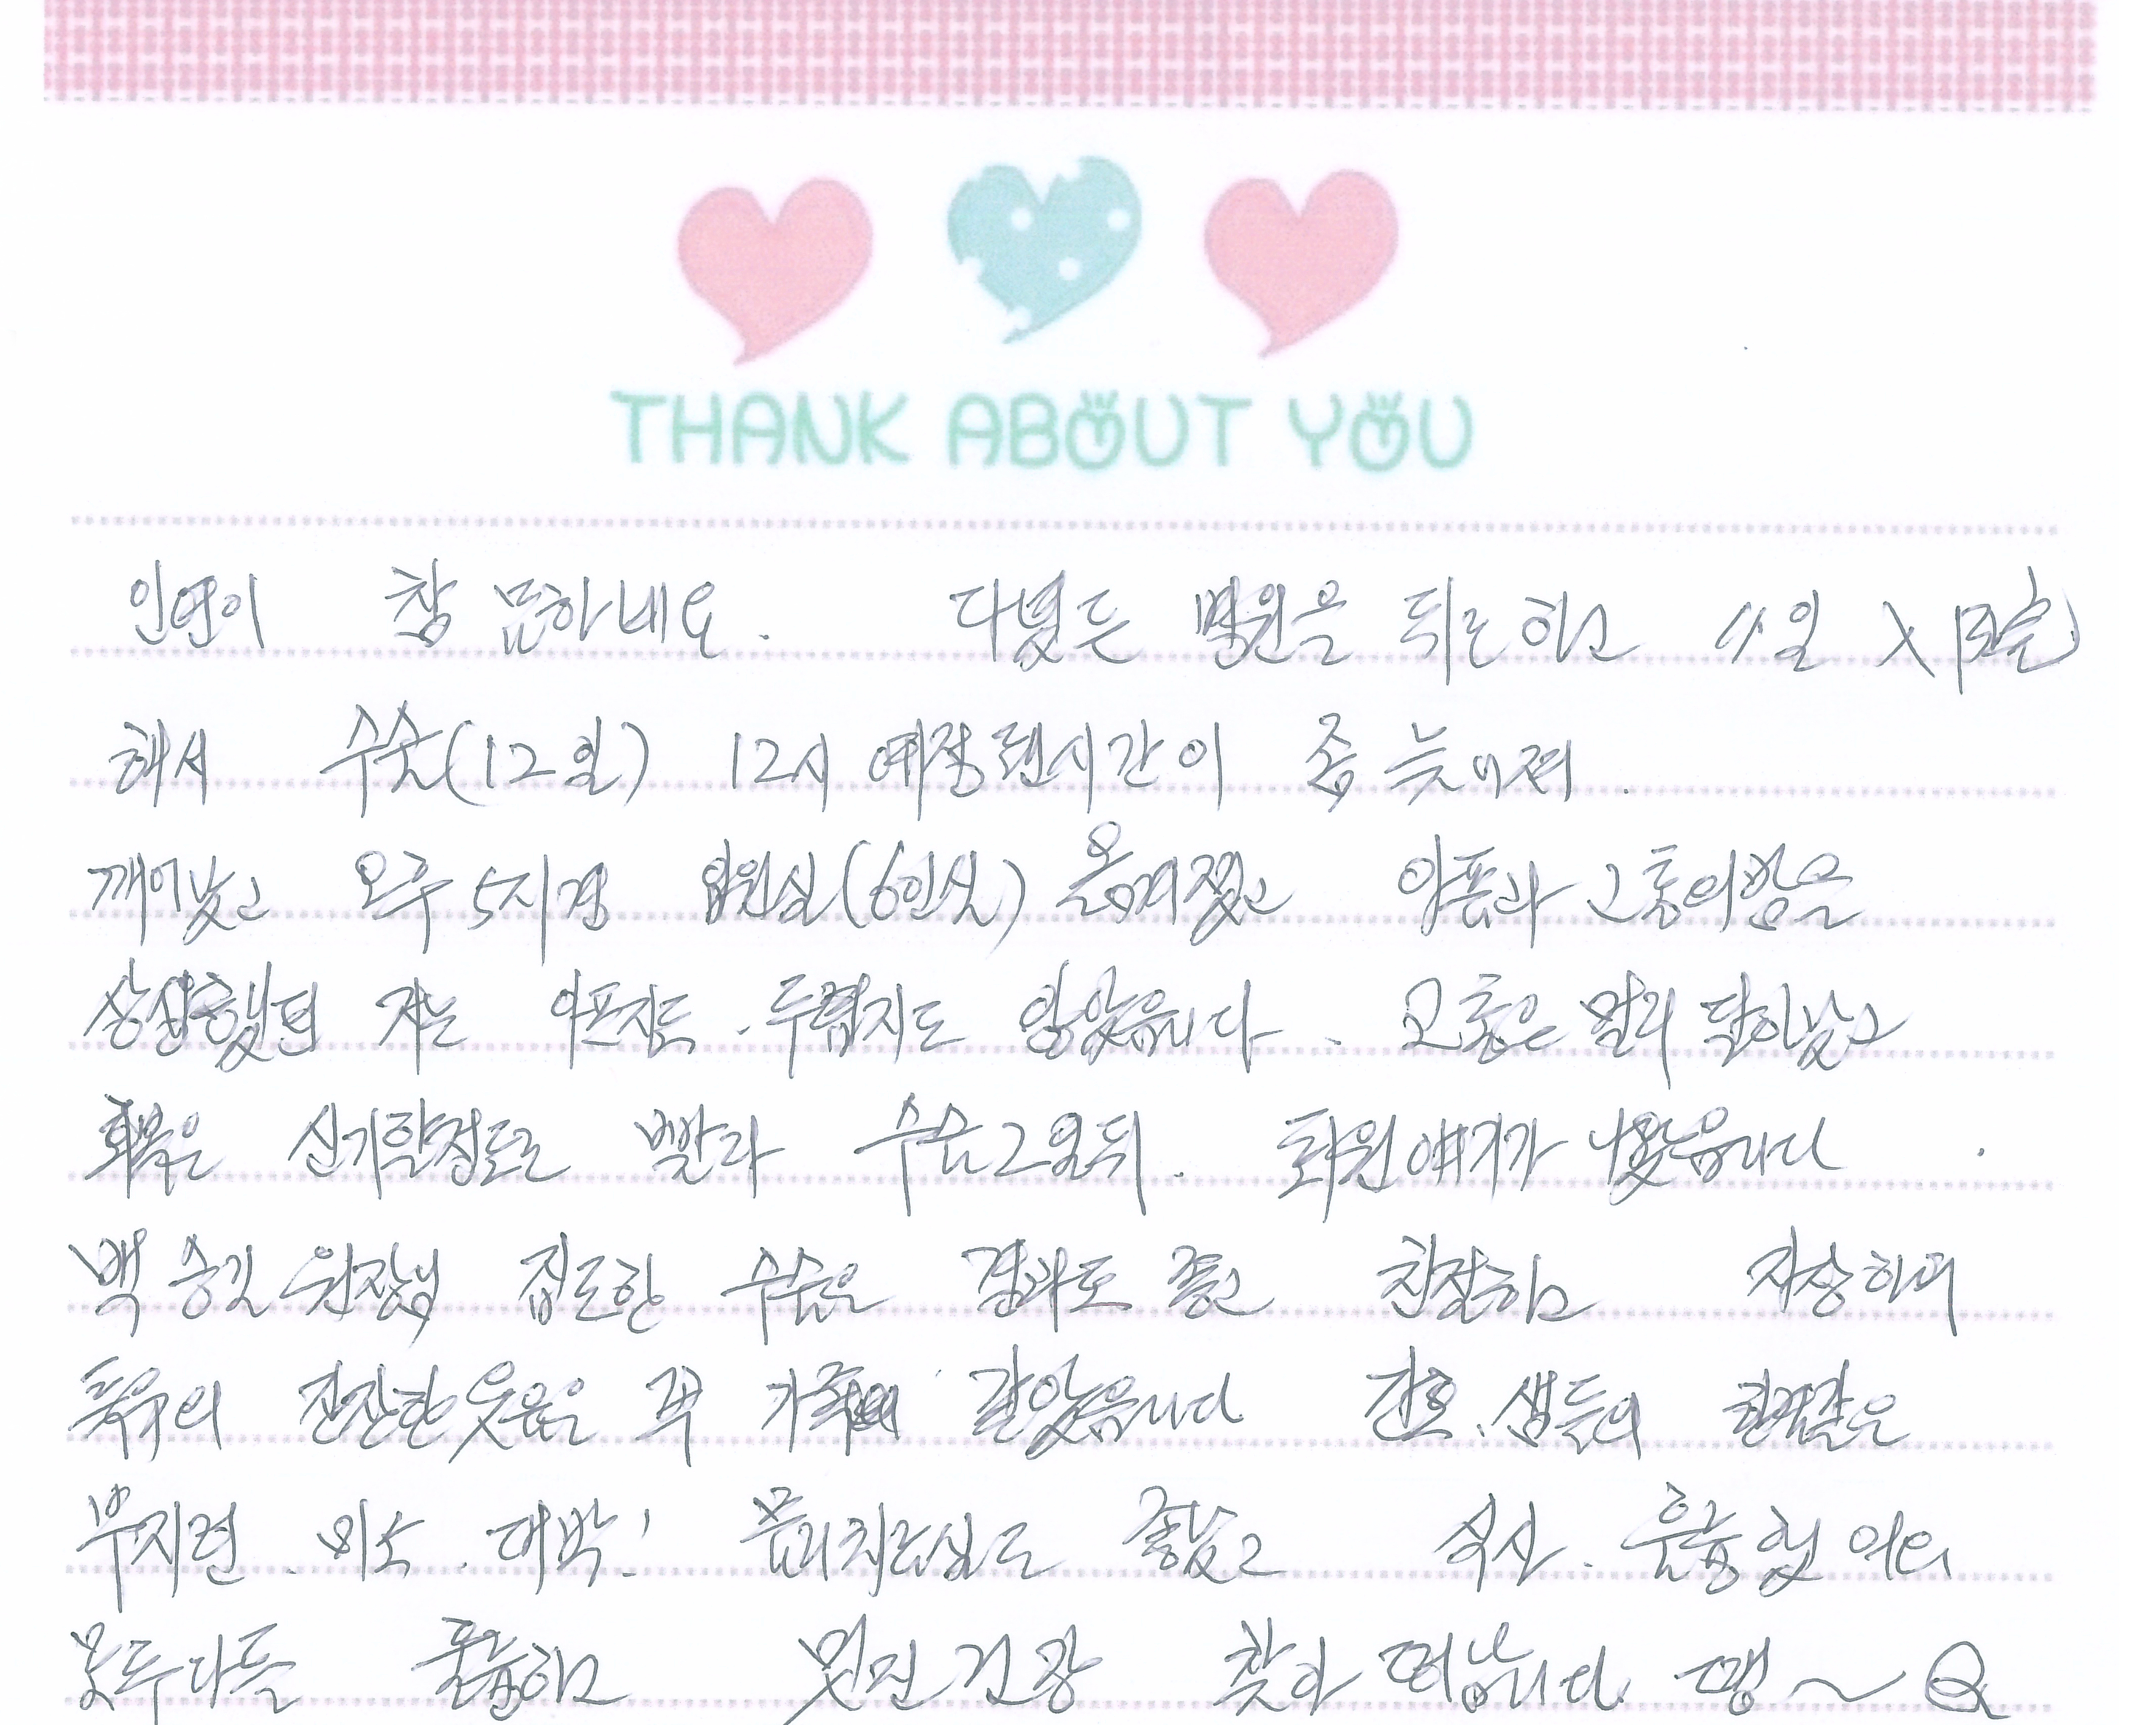 THANK ABOUT YOU
인연이 참 묘하네요. 다녔든 병원을 뒤로하고 11일 入
해서 수술(12일) 12시 예정된시간이 좀 늦어져.
깨어났고 오후 5시경 입원실(6인실) 옮겨졌고 아픔과 고통의밤을
상상했던 저는 아프지도. 두렵지도 않았읍니다. 고통은 멀리 달아났고
회복은 신기할정도로 빨라 수술2일뒤. 퇴원얘기가 나왔읍니다.
백승길 원장님 집도한 수술은 결과도 좋고 친절하고 자상하며
특유의 잔잔한웃음은 꼭 가족 같았읍니다 간호.샘들의 한결같은
부지런. 미소. 대박! 물리치료실도 좋았고 식사. 훌륭했어요
모두다들 훌륭하고 멋진건강 찾아 떠납니다. 땡~